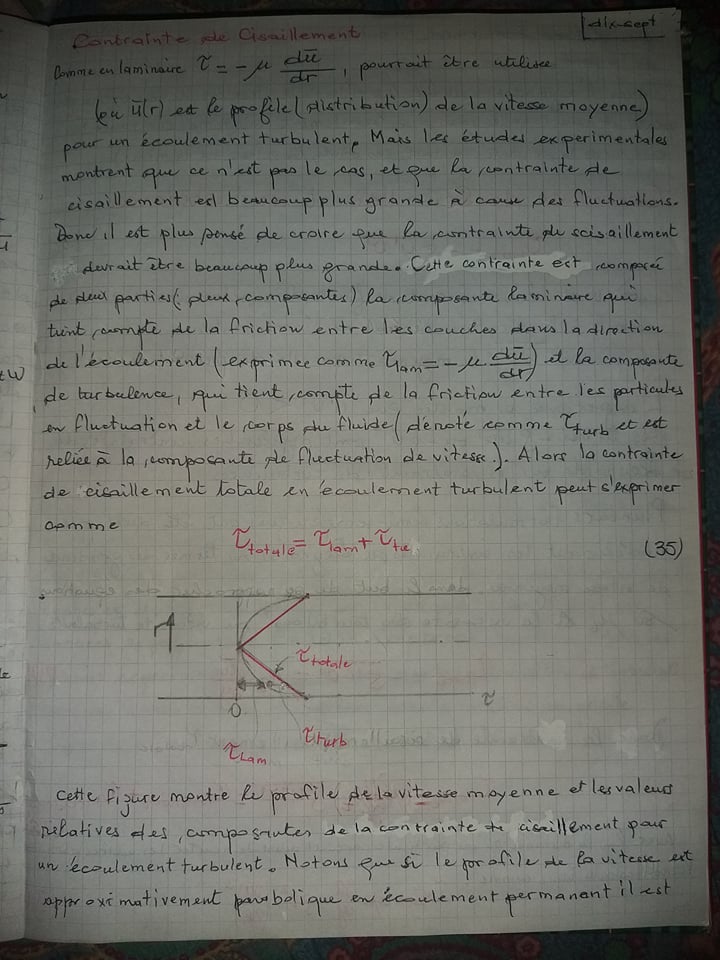 dix-sept
Contrainte de Cisaillement
Comme en laminaire τ = -μ dū/dr, pourrait être utilisée
(où ū(r) est le profile (distribution) de la vitesse moyenne)
pour un écoulement turbulent. Mais les études experimentales
montrent que ce n'est pas le cas, et que la contrainte de
cisaillement est beaucoup plus grande à cause des fluctuations.
Donc il est plus pensé de croire que la contrainte du scisaillement
devrait être beaucoup plus grande. Cette contrainte est composée
de deux parties (deux composantes) la composante laminaire qui
tient compte de la friction entre les couches dans la direction
de l'écoulement (exprimee comme τlam = -μ dū/dr) et la composante
de turbulence, qui tient compte de la friction entre les particules
en fluctuation et le corps du fluide (dénoté comme τturb et est
reliée à la composante de fluctuation de vitesse). Alors la contrainte
de cisaillement totale en écoulement turbulent peut s'exprimer
comme
τtotale = τlam + τtu (35)
r
τtotale
0
τ
τturb
τLam
Cette figure montre le profile de la vitesse moyenne et les valeurs
relatives des composantes de la contrainte de cisaillement pour
un écoulement turbulent. Notons que si le profile de la vitesse est
approximativement parabolique en écoulement permanent il est